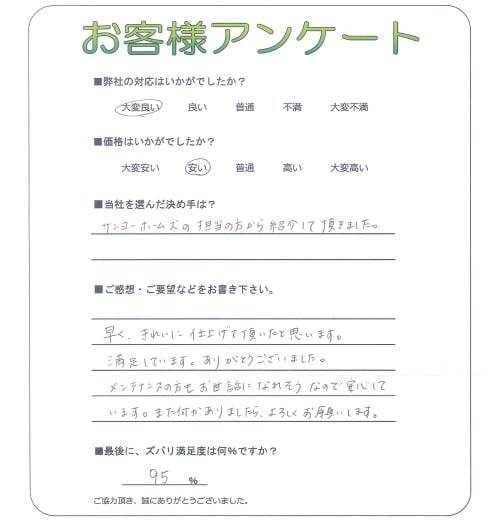 お客様アンケート
■弊社の対応はいかがでしたか？
大変良い 良い 普通 不満 大変不満
■価格はいかがでしたか？
大変安い 安い 普通 高い 大変高い
■当社を選んだ決め手は？
サンヨーホームズの担当の方から紹介して頂きました。
■ご感想・ご要望などをお書き下さい。
早く、きれいに仕上げて頂いたと思います。
満足しています。ありがとうございました。
メンテナンスの方もお世話になれそうなので安心して
います。また何かありましたら、よろしくお願いします。
■最後に、ズバリ満足度は何％ですか？
95 ％
ご協力頂き、誠にありがとうございました。